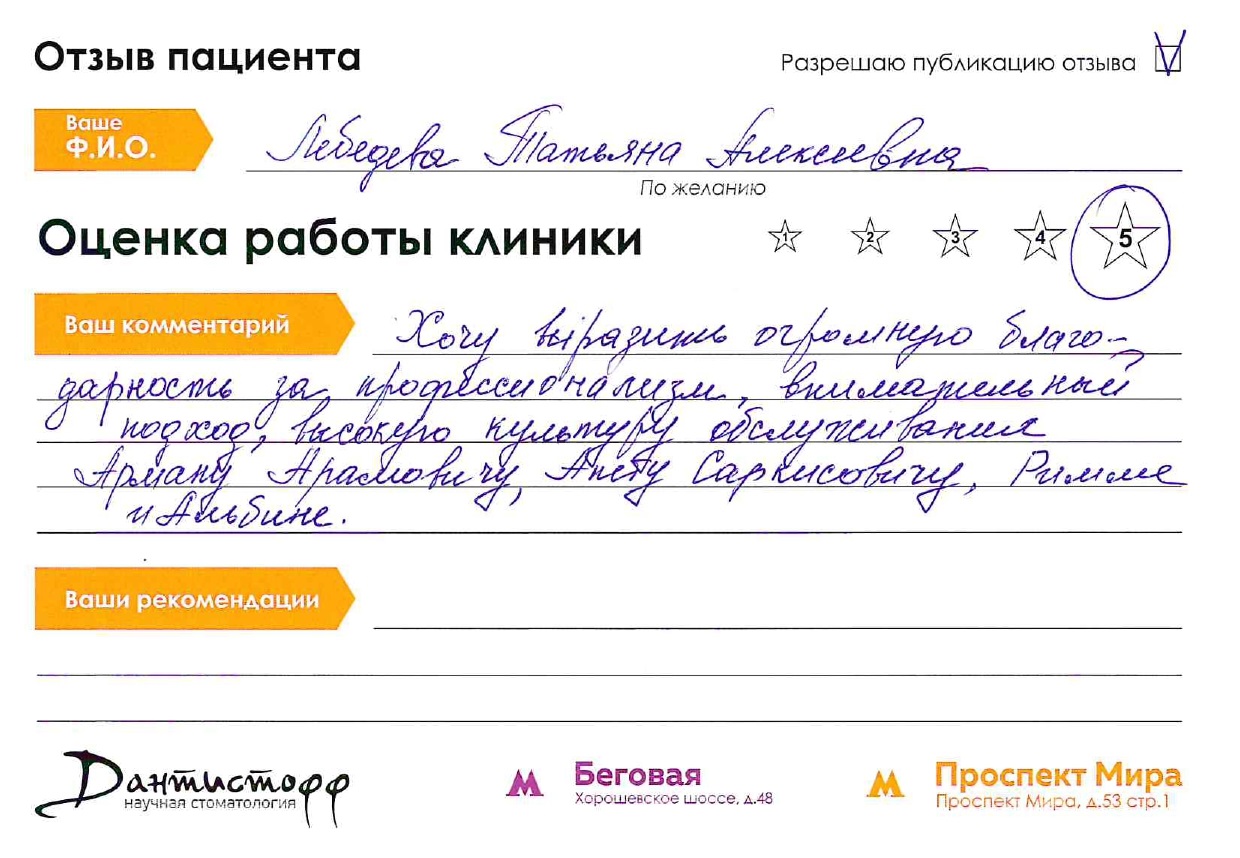 Отзыв пациента
Разрешаю публикацию отзыва
Ваше
Ф.И.О.
Лебедева Татьяна Алексеевна
По желанию
Оценка работы клиники
1 2 3 4 5
Ваш комментарий
Хочу выразить огромную благо-
дарность за профессионализм, внимательный
подход, высокую культуру обслуживания
Арману Арамовичу, Саркисовичу, Римме
и Альбине.
Ваши рекомендации
Дантистофф
научная стоматология
Беговая
Хорошевское шоссе, д.48
Проспект Мира
Проспект Мира, д.53 стр.1